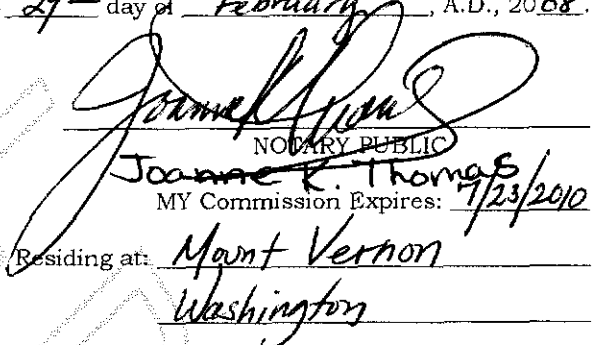 27 day of February, A.D., 2008.
NOTARY PUBLIC
Joanne K. Thomas
MY Commission Expires: 7/23/2010
Residing at: Mount Vernon
Washington